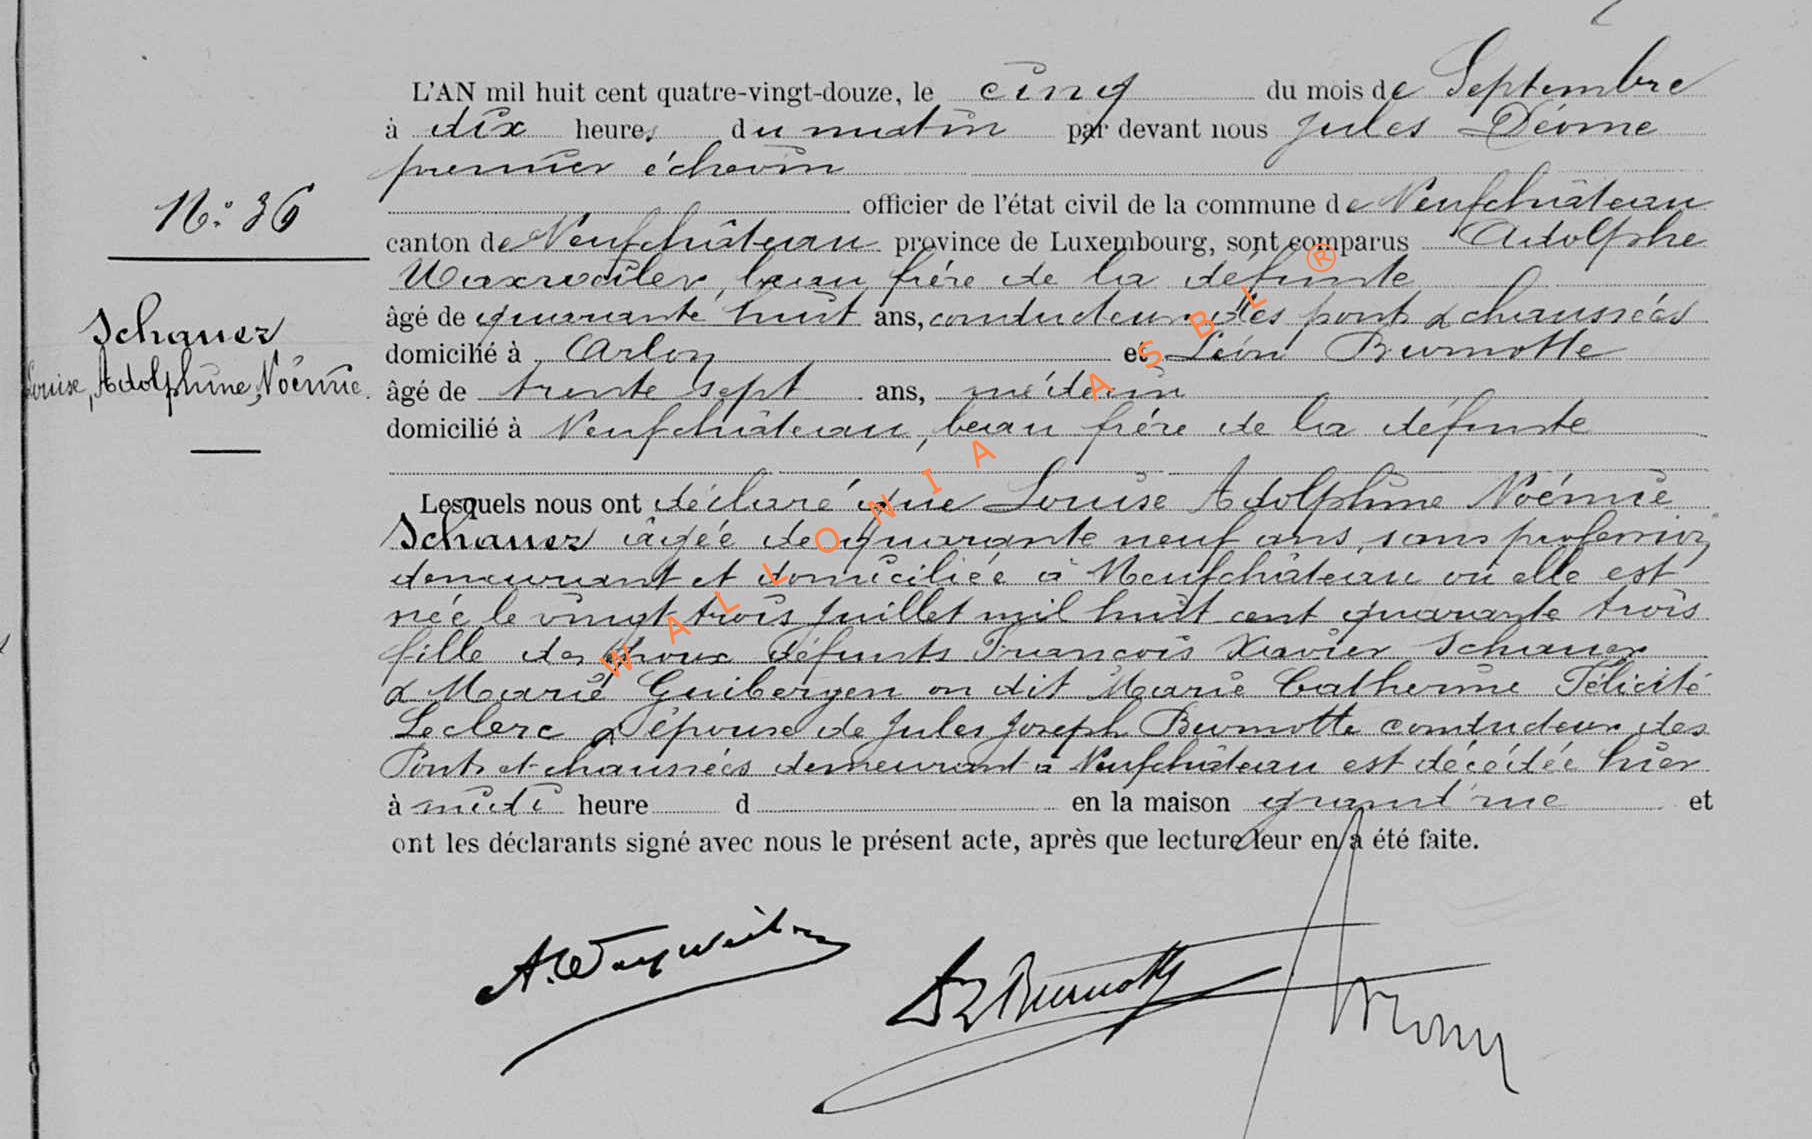 L'AN mil huit cent quatre-vingt-douze, le cinq du mois de Septembre
à dix heures du matin par devant nous Jules Déome
premier échevin
officier de l'état civil de la commune de Neufchâteau
N° 36
canton de Neufchâteau province de Luxembourg, sont comparus Adolphe
Waxweiler, beau frère de la défunte
âgé de quarante huit ans, conducteur des ponts & chaussées
Schauer
domicilié à Arlon et Léon Burnotte
Louise, Adolphine, Noémie.
âgé de trente sept ans, médecin
domicilié à Neufchâteau, beau frère de la défunte
Lesquels nous ont déclaré que Louise Adolphine Noémie
Schauer âgée de quarante neuf ans, sans profession,
demeurant et domiciliée à Neufchâteau où elle est
née le vingt-trois Juillet mil huit cent quarante trois
fille des époux défunts François Xavier Schauer
& Marie Guibergen on dit Marie Catherine Félicité
Leclerc & épouse de Jules Joseph Burnotte conducteur des
Ponts et chaussées demeurant à Neufchâteau est décédée hier
à midi heure d en la maison grand'rue et
ont les déclarants signé avec nous le présent acte, après que lecture leur en a été faite.
A. Waxweiler
Burnotte
WALLONIA ASBL ®